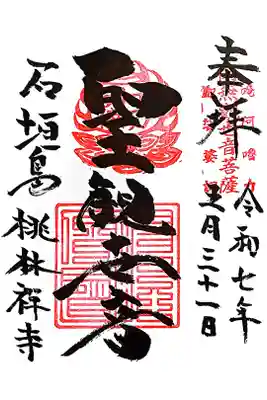 奉拝
令和七年
五月三十一日
聖観世音
石垣島
桃林禅寺